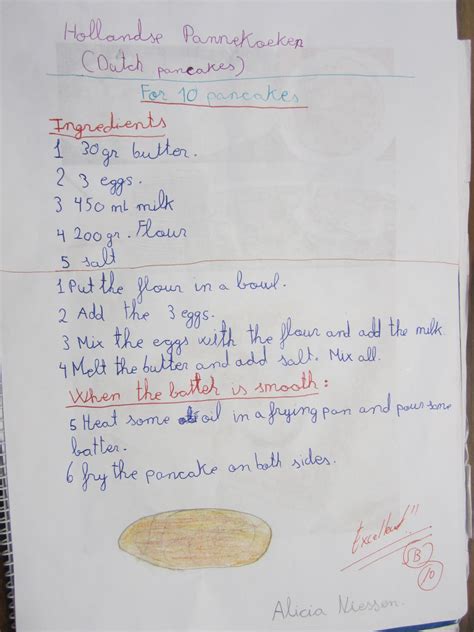 Hollandse Pannekoeken
(Dutch pancakes)
For 10 pancakes
Ingredients
1 30gr butter.
2 3 eggs.
3 450 ml milk
4 200gr. Flour
5 salt
1 Put the flour in a bowl.
2 Add the 3 eggs.
3 Mix the eggs with the flour and add the milk
4 Melt the butter and add salt. Mix all.
When the batter is smooth:
5 Heat some oil in a frying pan and pour some
batter.
6 fry the pancake on both sides.
Excellent!!
B
10
Alicia Niessen.